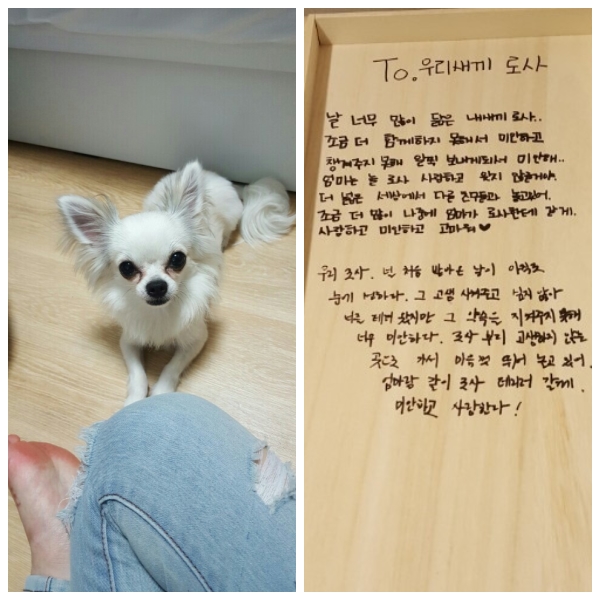 To. 우리새끼 로사
날 너무 많이 닮은 내새끼 로사..
조금 더 함께하지 못해서 미안하고
챙겨주지 못해 일찍 보내게되서 미안해..
엄마는 늘 로사 사랑하고 잊지 않을게.
더 넓은 세상에서 다른 친구들과 놀고있어.
조금 더 많이 나중에 엄마가 로사한테 갈게.
사랑하고 미안하고 고마워♥
우리 로사. 널 처음 만나는 날이 아직도
눈에 선하다. 그 고생 시켜주고 싶지 않아
너를 데려 왔지만 그 약속을 지켜주지 못해
너무 미안하다. 로사 부디 고생하지 않는
곳으로 가서 마음껏 뛰어 놀고 있어.
엄마랑 같이 로사 데리러 갈게.
미안하고 사랑한다!